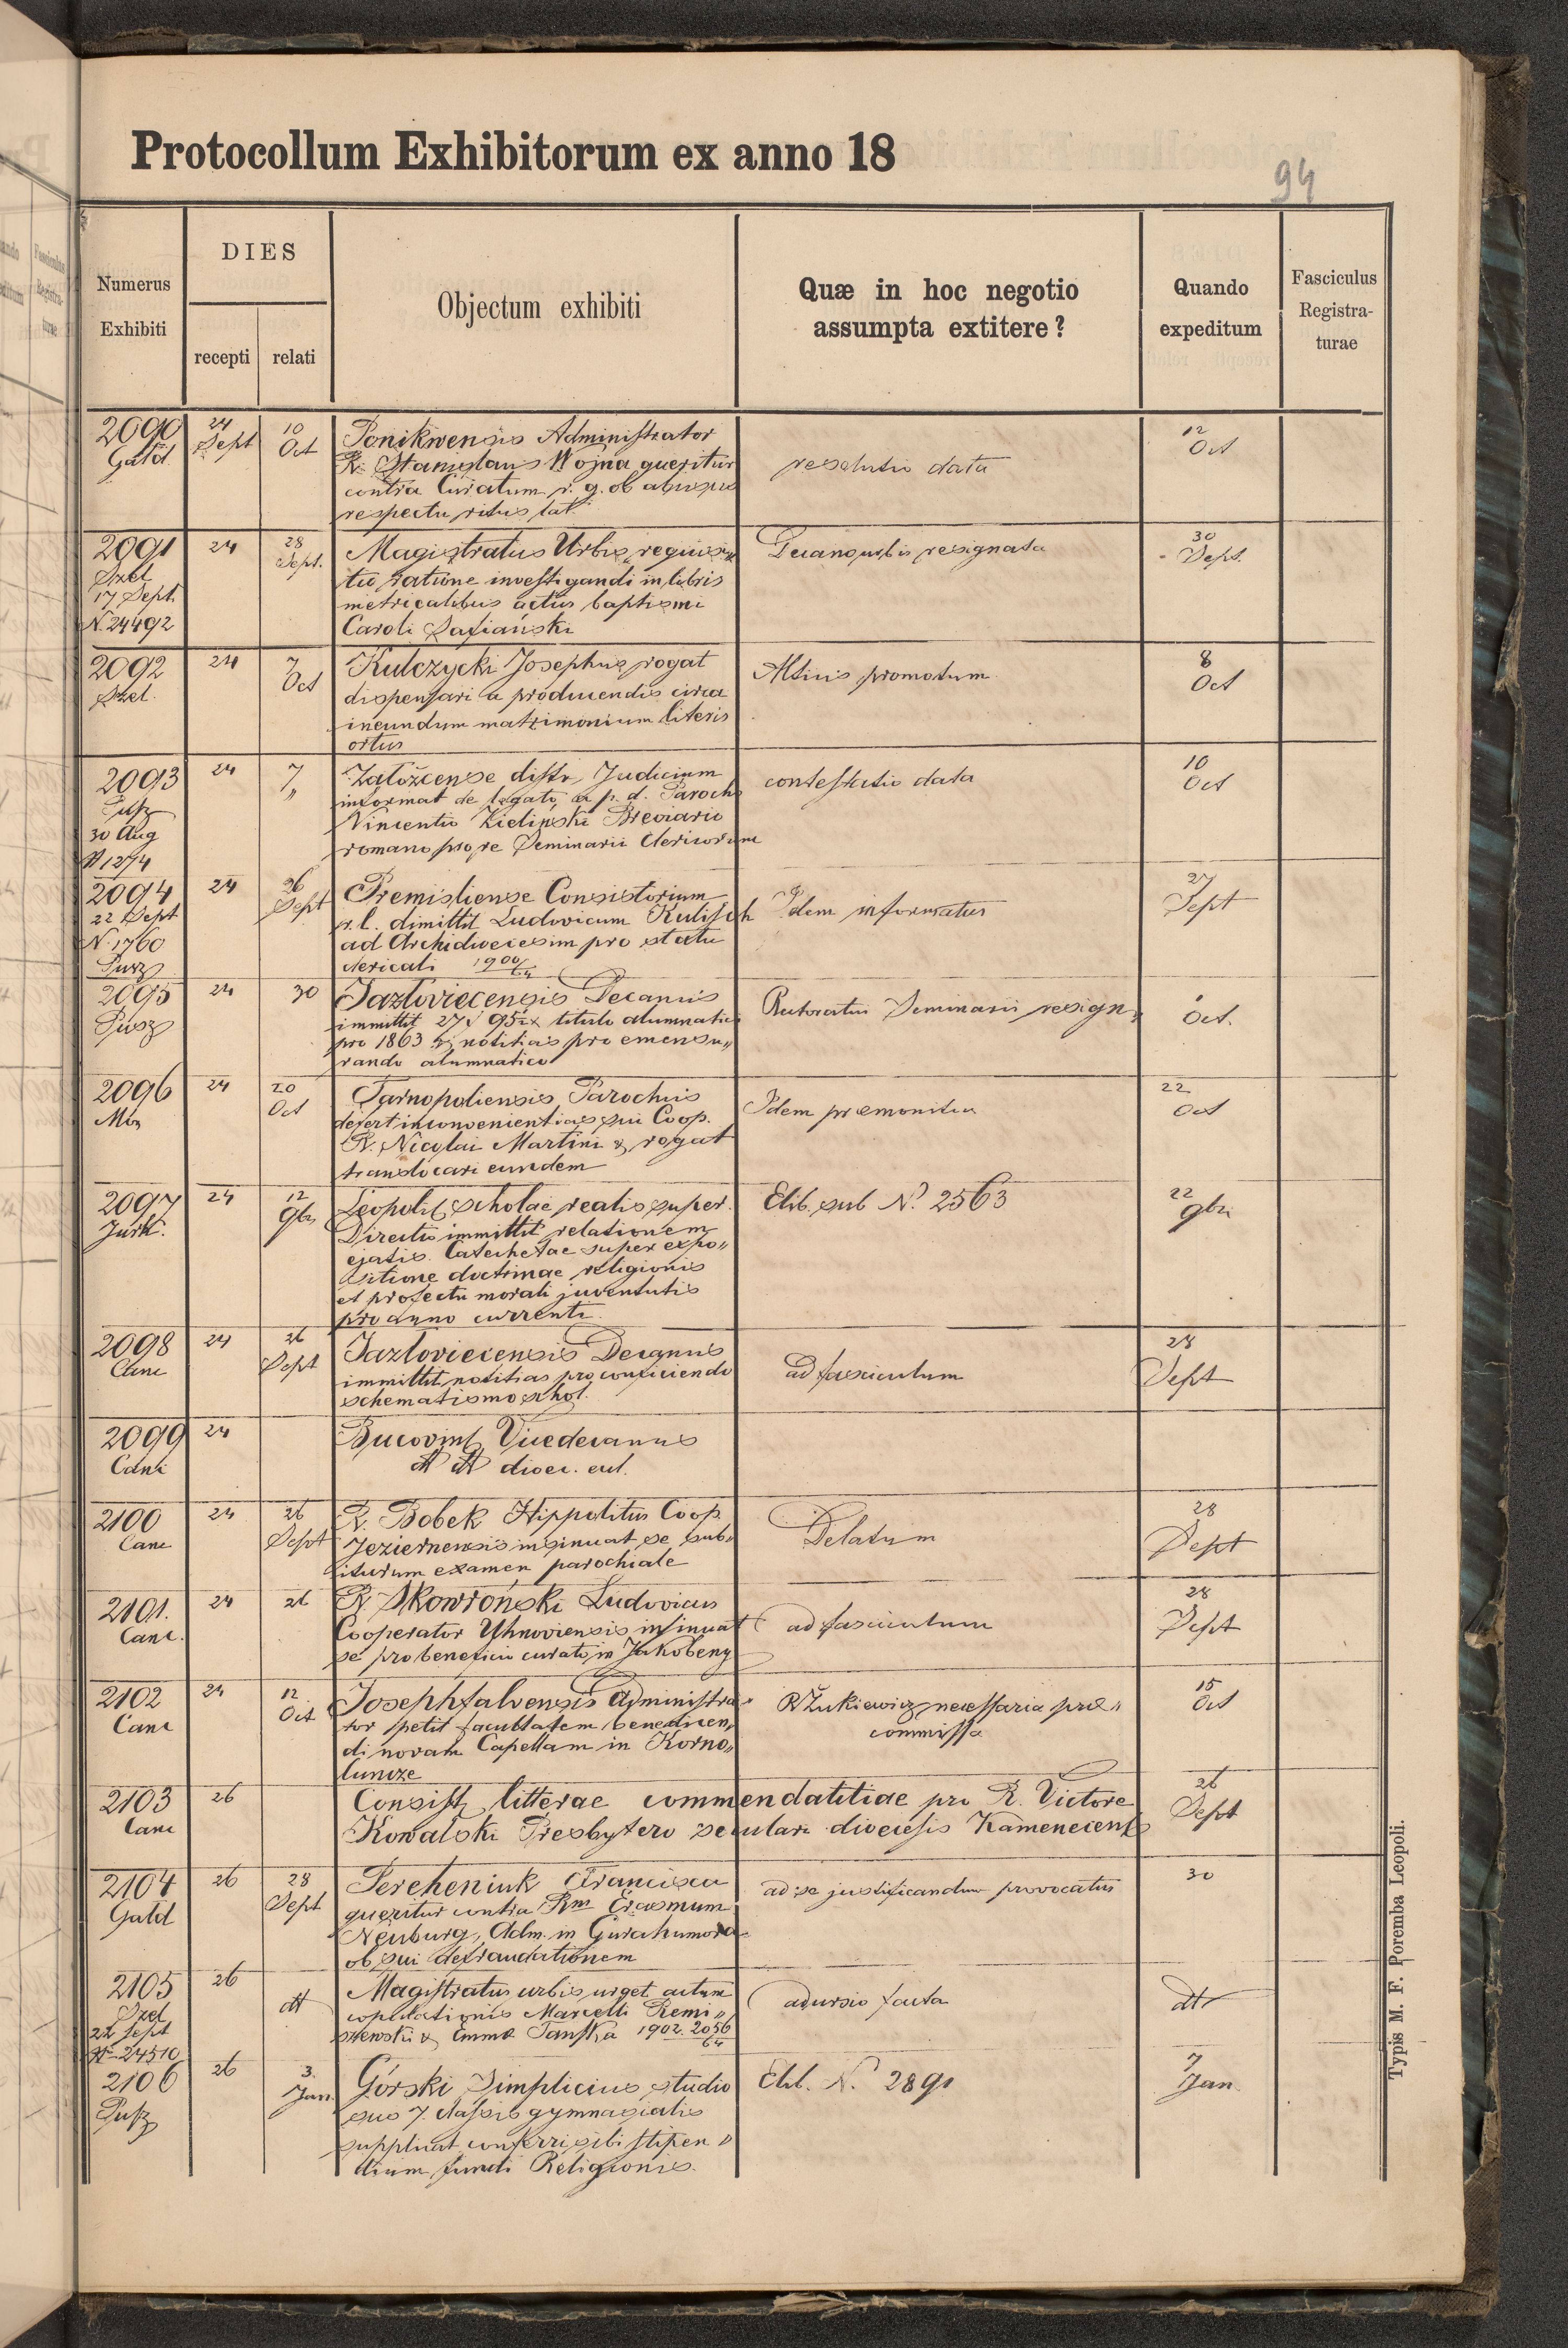 Protocollum Exhibitorum ex anno 18
94
Numerus Exhibiti
DIES
recepti
relati
Objectum exhibiti
Quæ in hoc negotio assumpta extitere?
Quando expeditum
Fasciculus Registra-turae
2090 24 Sept 10 Oct Ponikwensis Administrator 12 Oct
R. Stanislaus Wojna queritur resolutio data
contra Curatum r. g. ob abusus
respectu ritus lat.
2091 24 28 Sept. Magistratus Urbis requisi Decano urbis resignata 30 Sept.
Szel tio ratione investigandi in libris
17 Sept. metricalibus actus baptismi
N. 24492 Caroli
2092 24 7 Oct Kulczycki Josephus rogat Altius promotum 8 Oct
Szel. dispensari a producendis circa
ineundum matrimonium literis
ortus
2093 24 7 " Załozcense distr. Judicium contestatio data 10 Oct
informat de legato a p. d. Parocho
30 Aug Vincentio Zieliński Breviario
N 1274 romano pro re Seminarii Clericorum
2094 24 26 Sept Premisliense Consistorium 27 Sept
22 Sept r. l. dimittit Ludovicum Kulisch Idem informatus
N. 1760 ad Archidioecesim pro statu
clericali 1900/64
2095 24 30 Jazloviecensis Decanus Rectoratui Seminarii resign. Oct.
immittit titulo alumnatici
pro 1863 & notitias pro emensu„
rando alumnatico
2096 24 20 Oct Tarnopoliensis Parochus 22 Oct
defert inconvenientias sui Coop. Idem præmonitus
R. Nicolai Martini & rogat
translocari eundem
2097 24 12 9br Leopol. scholae realis super. Elib. sub N. 2563 22 9br
Jurk. Directio immittit relationem
ejatis Catechetae super expo„
sitione doctrinae religionis
et profectu morali juventutis
pro anno currenti
2098 24 26 Sept Jazloviecensis Decanus 28 Sept
Canc immittit notitias pro conficiendo ad fasciculum
schematismo schol.
2099 24 Bucovin. Vicedecanus
Canc dt dt dioec. eccl.
2100 24 26 Sept R. Bobek Hippolitus Coop. 28 Sept
Canc Jeziernensis insinuat se sub„ Delatum
iturum examen parochiale
2101. 24 26 R. Skowroński Ludovicus 28 Sept
Canc. Cooperator Uhnoviensis insinuat ad fasciculum
se pro beneficio curato in Jakobeny
2102 24 12 Oct Josephfalvensis Administra„ R. Żukiewicz necessaria præ„ 15 Oct
Canc tor petit facultatem benedicen„ commissa
di novam Capellam in Korno„
luncze
2103 26 Consist. litterae commendatitiae pro R. Victore 26 Sept
Canc Kowalski Presbytero seculari dioecesis Kamenecens
2104 26 28 Sept Pereheniuk Francisca 30
queritur contra Rm Erasmum ad se justificandum provocatus
Neuburg, Adm. in Gurahumora
ob sui defraudationem
2105 26 dt Magistratus urbis urget actum dtt
Szel copulationis Marcelli Remi„ adursio facta
22 Sept szewski & Emma Tanska 1902. 2056/64
N 24510
2106 26 3. Jan. Górski Simplicius studio Elib. N. 2891 7 Jan.
sus 7. classis gymnasialis
supplicat conferri sibi stipen„
dium fundi Religionis.
Typis M. F. Poremba Leopoli.